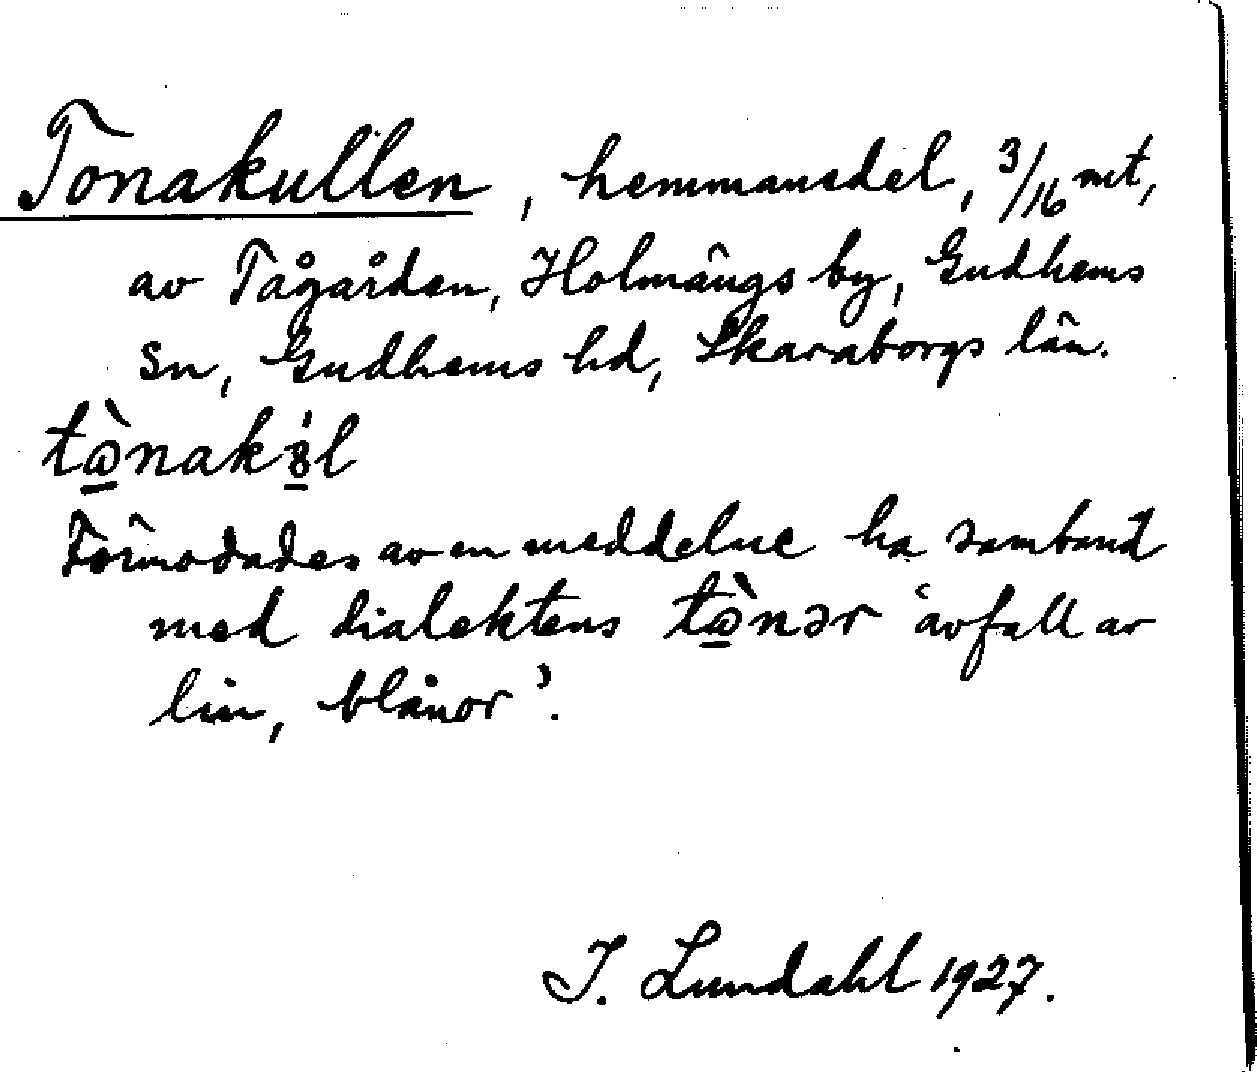 Tonakullen, hemmansdel, 3/16 mt,
av Tågården, Holmängs by, Gudhems
sn, Gudhems hd, Skaraborgs län.
tὼ̱nak8̱̍l
Förmodades av en meddelare ha samband
med dialektens tὼ̱nər 'avfall av
lin, blånor'.
J. Lundahl 1927.